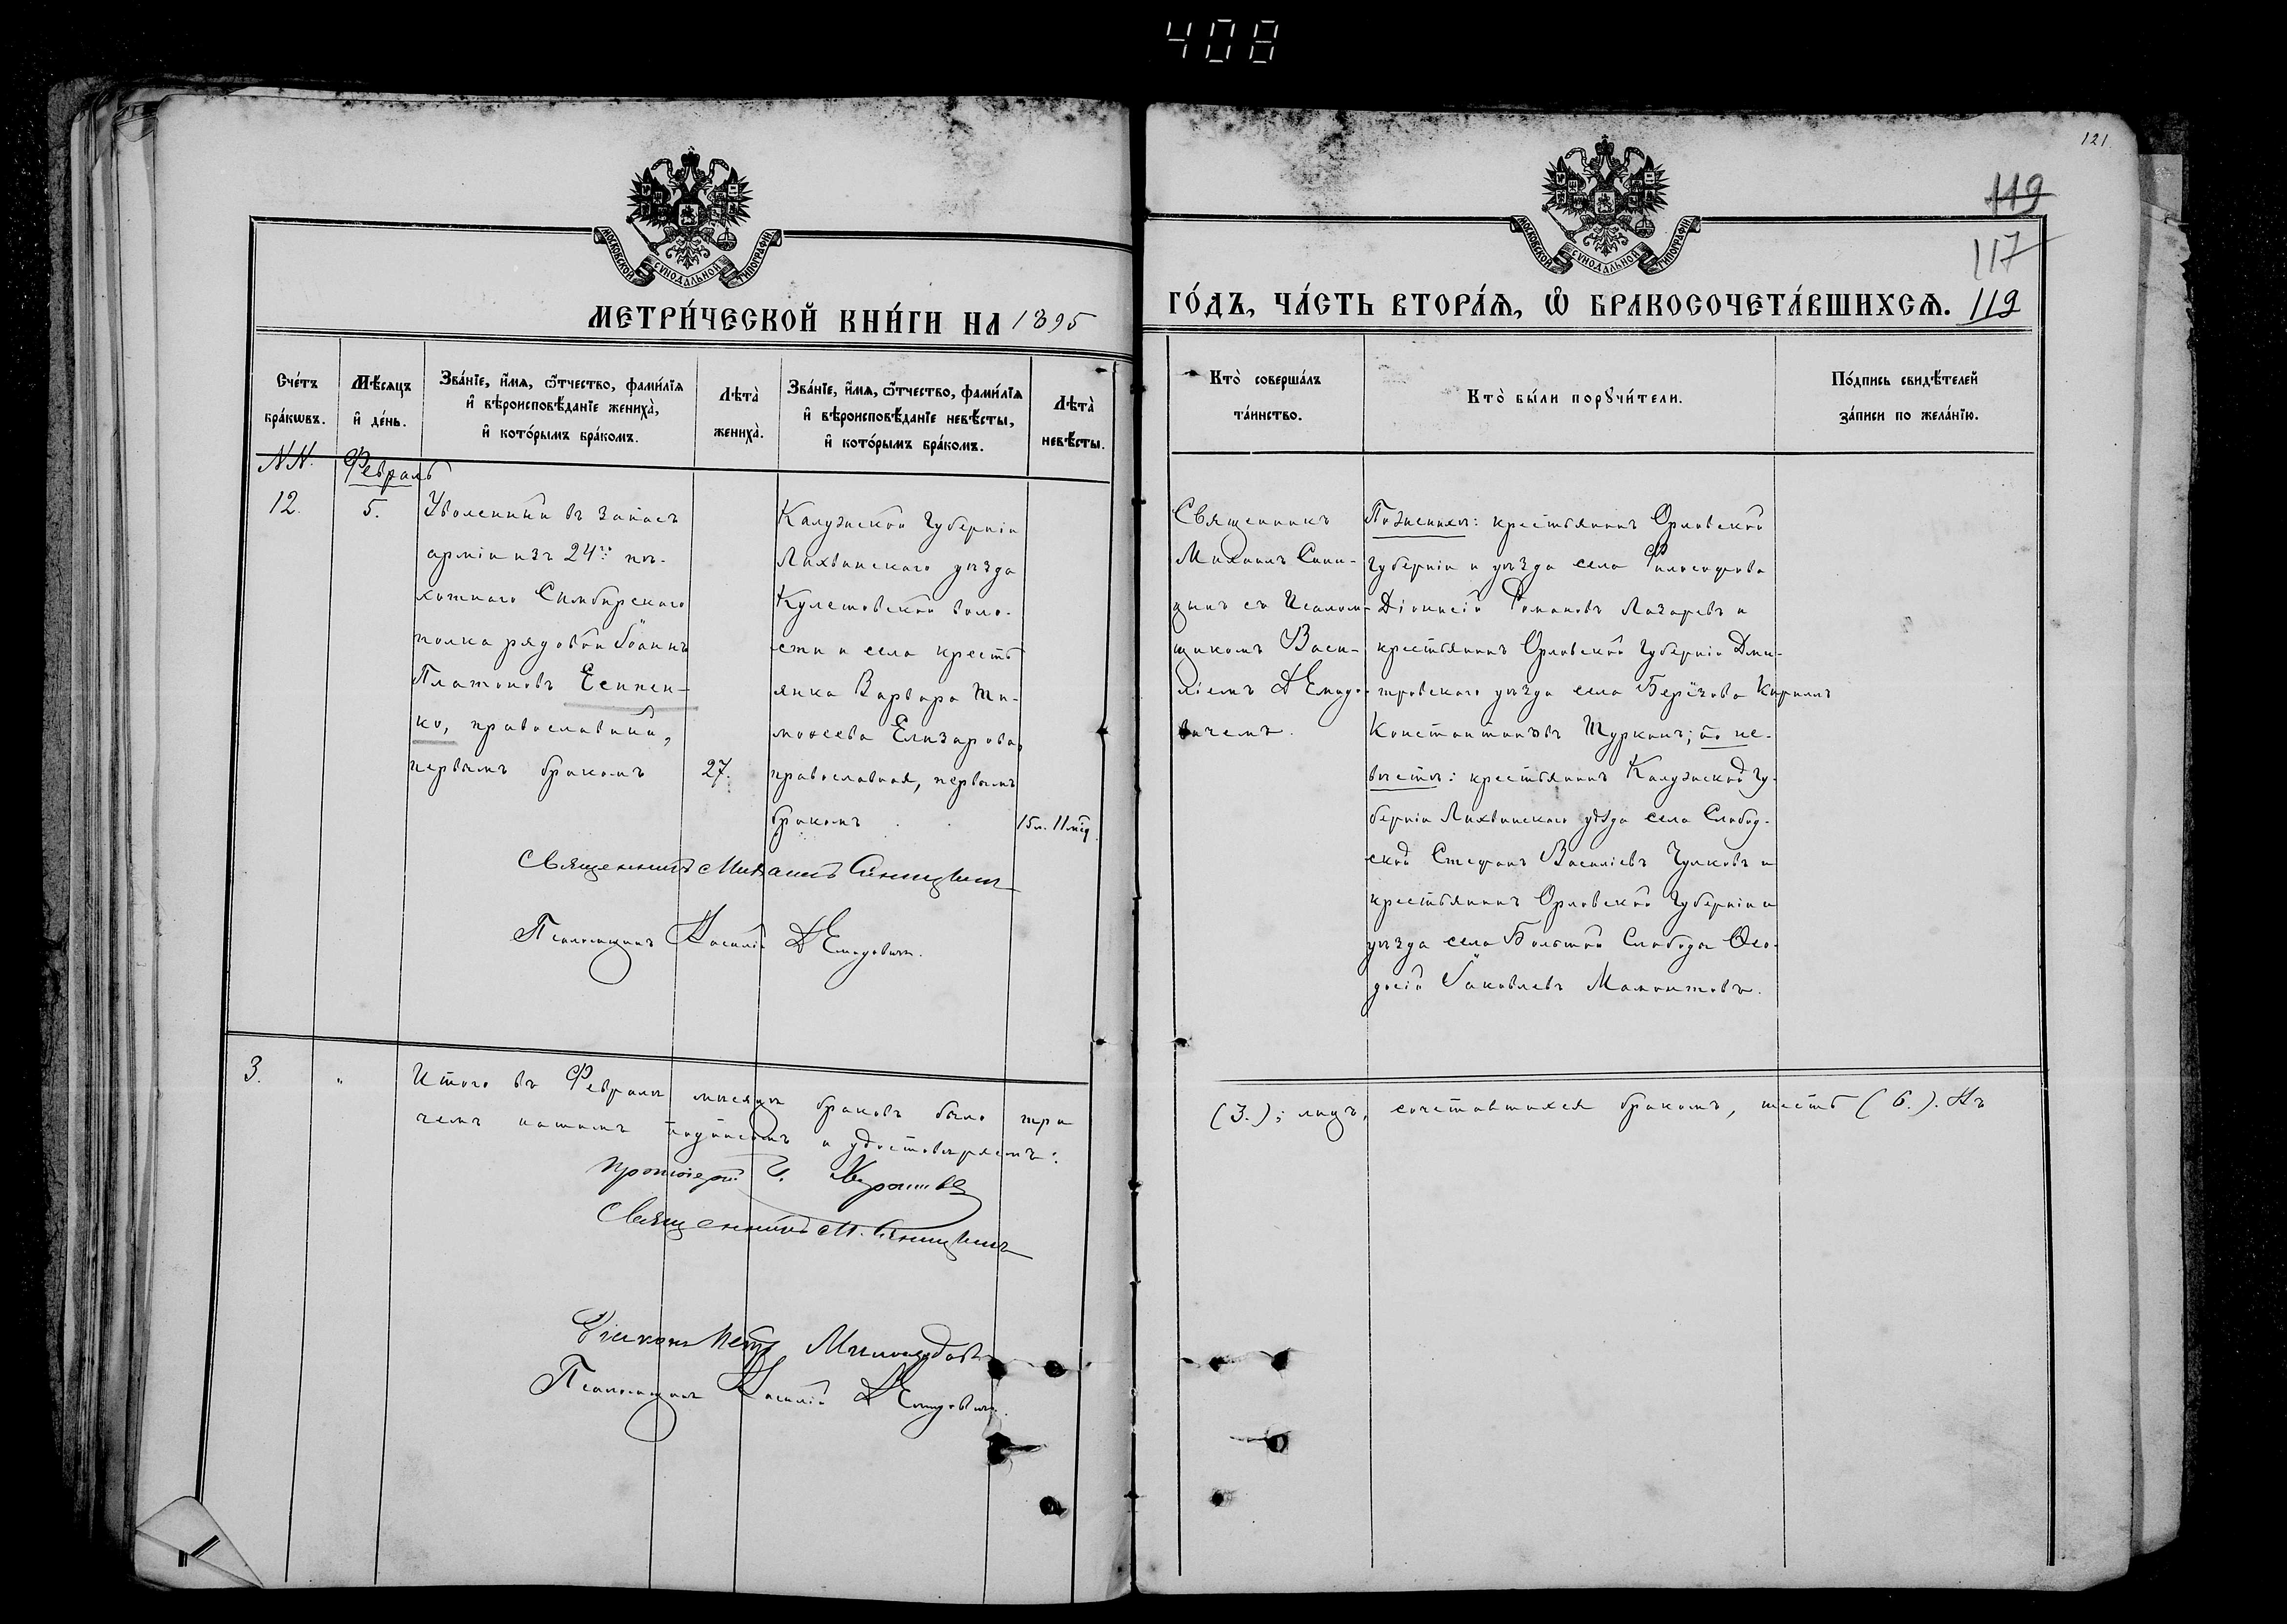 408
121
119
117
119
МОСКОВСКОЙ СУНОДАЛЬНОЙ ТИПОГРАФІИ
МОСКОВСКОЙ СУНОДАЛЬНОЙ ТИПОГРАФІИ
МЕТРИ́ЧЕСКОЙ КНИ́ГИ НА 1895
ГО́ДЪ, ЧА́СТЬ ВТОРА́Ѧ, Ѡ҆ БРАКОСОЧЕТА́ВШИХСѦ.
Сче́тъ бра́кѡвъ.
Мѣ́сяцъ и҆ де́нь.
Зва́нїе, и҆́мѧ, ѻ҆́тчество, фами́лїѧ и҆ вѣроисповѣ́данїе жениха̀, и҆ кото́рымъ бра́комъ.
Лѣта̀ жениха̀.
Зва́нїе, и҆́мѧ, ѻ҆́тчество, фами́лїѧ и҆ вѣроисповѣ́данїе невѣ́сты, и҆ кото́рымъ бра́комъ.
Лѣта̀ невѣ́сты.
Кто̀ соверша́лъ та́инство.
Кто̀ бы́ли порꙋчи́тели.
По́дпись свидѣ́телей за́писи по жела́нїю.
NN.
Февраль
12.
5.
Уволенный въ запасъ
арміи изъ 24го пѣ-
хотнаго Симбирскаго
полка рядовой Іоаннъ
Платоновъ Есипен-
ко, православный,
первымъ бракомъ
27.
Калужской губерніи
Лихвинскаго уѣзда
Кулешовской воло-
сти и села кресть
янка Варвара Ти-
моѳеева Елизарова,
православная, первымъ
бракомъ
15л. 11мѣс.
Священникъ
Михаилъ Сини-
цынъ съ Псалом-
щикомъ Васи-
ліемъ Демидо-
вичемъ.
По женихѣ: крестьянинъ Орловской
губерніи и уѣзда села Философова
Діонисій Романовъ Лазаревъ и
крестьянинъ Орловской губерніи Дми-
тровскаго уѣзда села Берёзова Кириллъ
Константиновъ Туркинъ; по не-
вѣстѣ: крестьянинъ Калужской гу-
берніи Лихвинскаго уѣзда села Слобод-
ской Стефанъ Василіевъ Чулковъ и
крестьянинъ Орловской губерніи и
уѣзда села Большой Слободы Ѳео-
досій Іаковлевъ Мамонтовъ.
Священникъ Михаилъ Синицынъ
Псаломщикъ Василій Демидовичъ.
3.
"
Итого въ Февралѣ мѣсяцѣ браковъ было три
(3.); лицъ, сочетавшихся бракомъ, шесть (6.). Въ
чемъ нашимъ подписомъ и удостовѣряемъ:
Протоіерей
Священникъ М. Синицынъ
Діаконъ Петръ
Псаломщикъ Василій Демидовичъ.